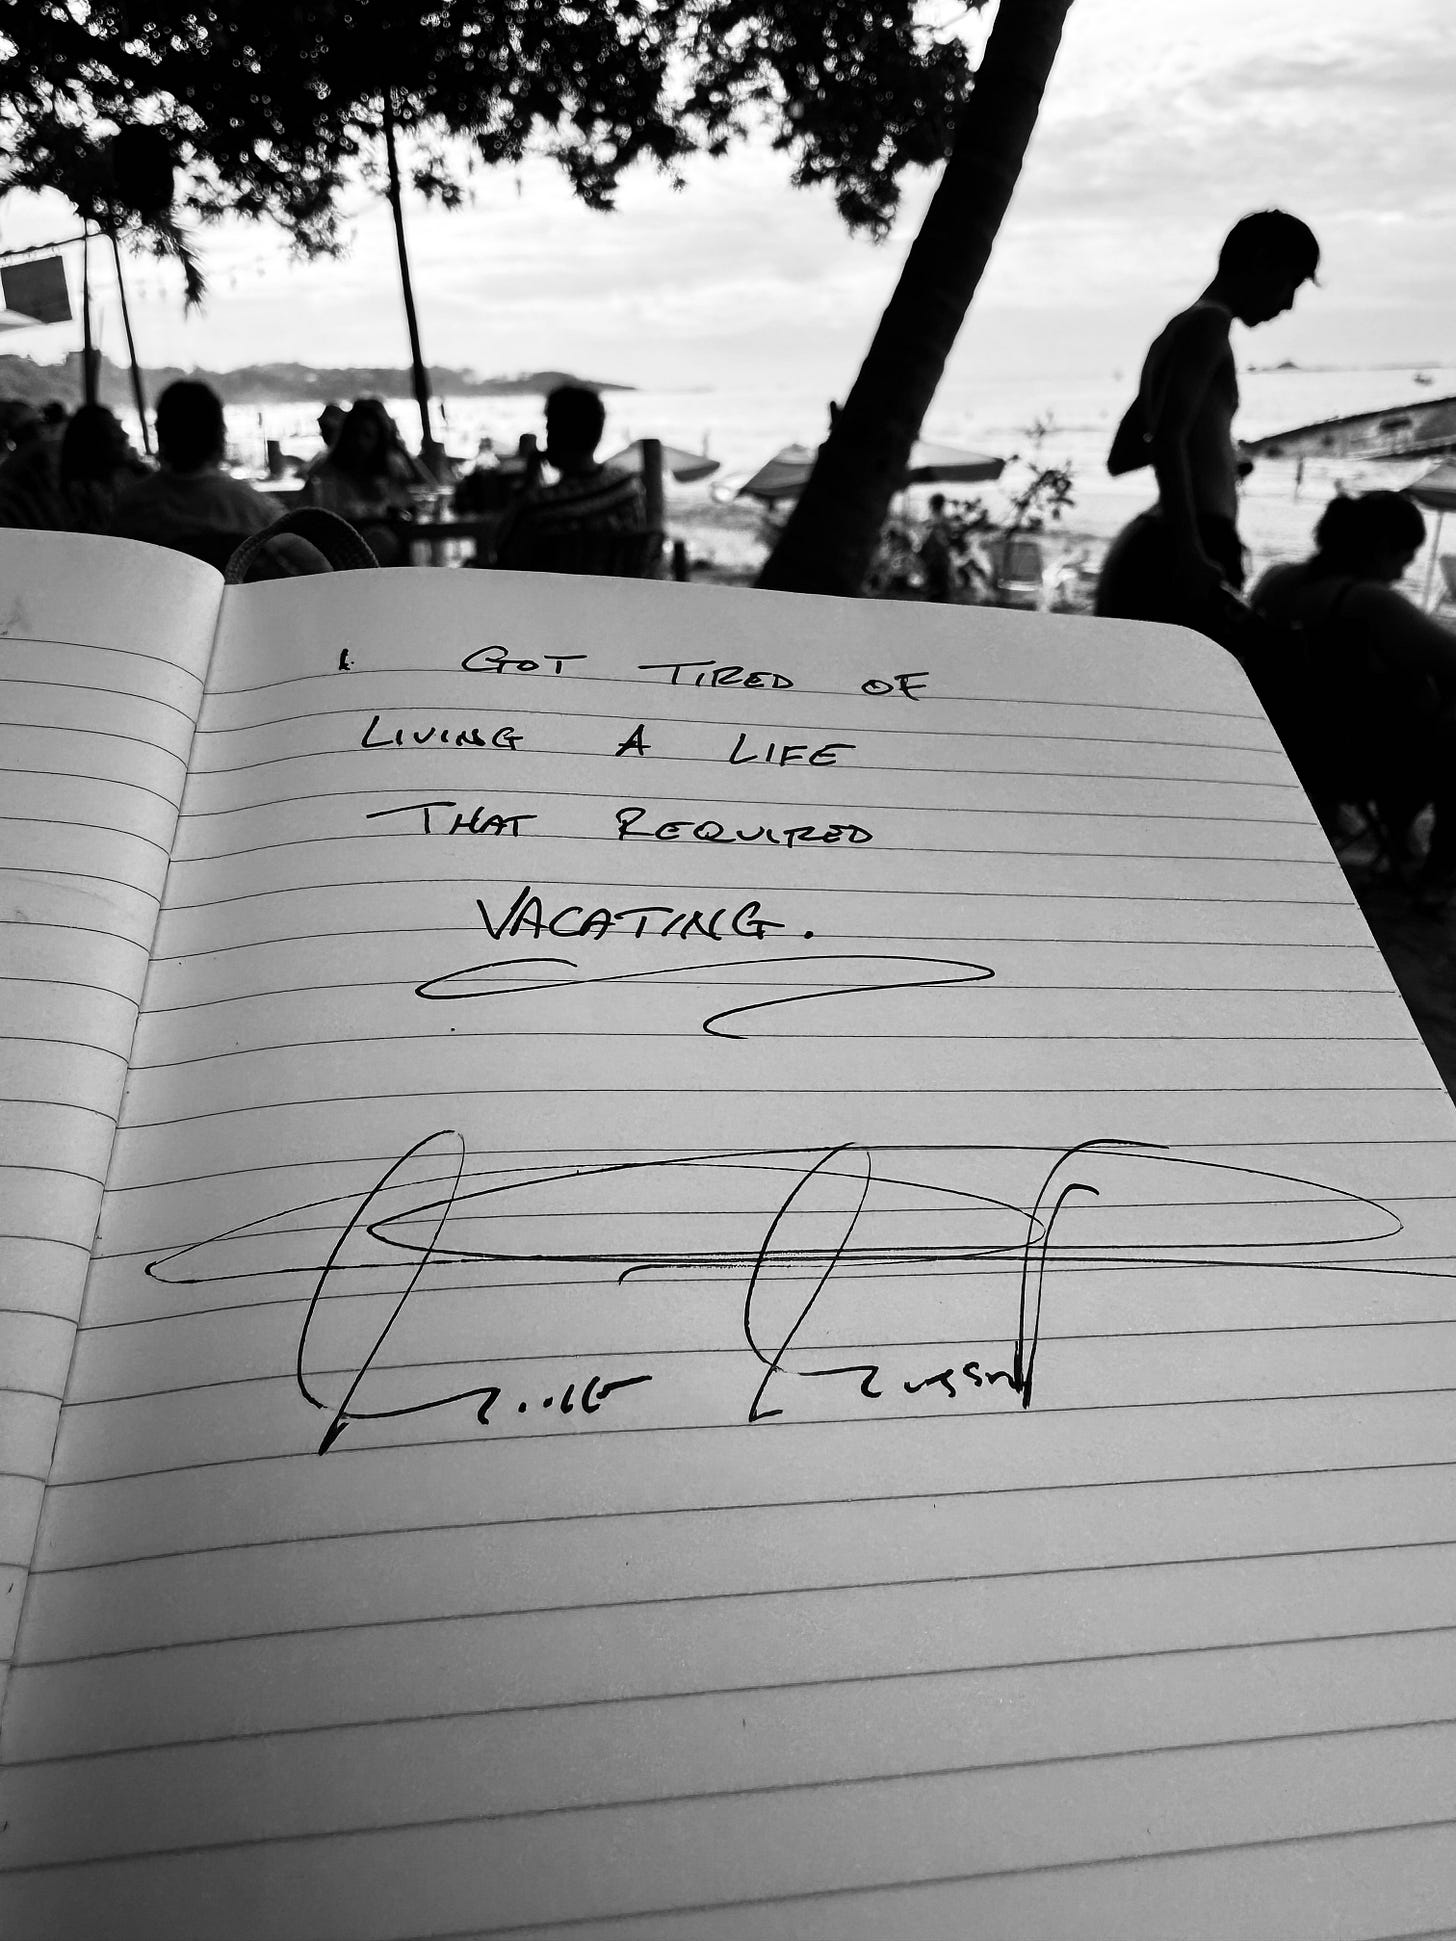 I GOT TIRED OF
LIVING A LIFE
THAT REQUIRED
VACATING.